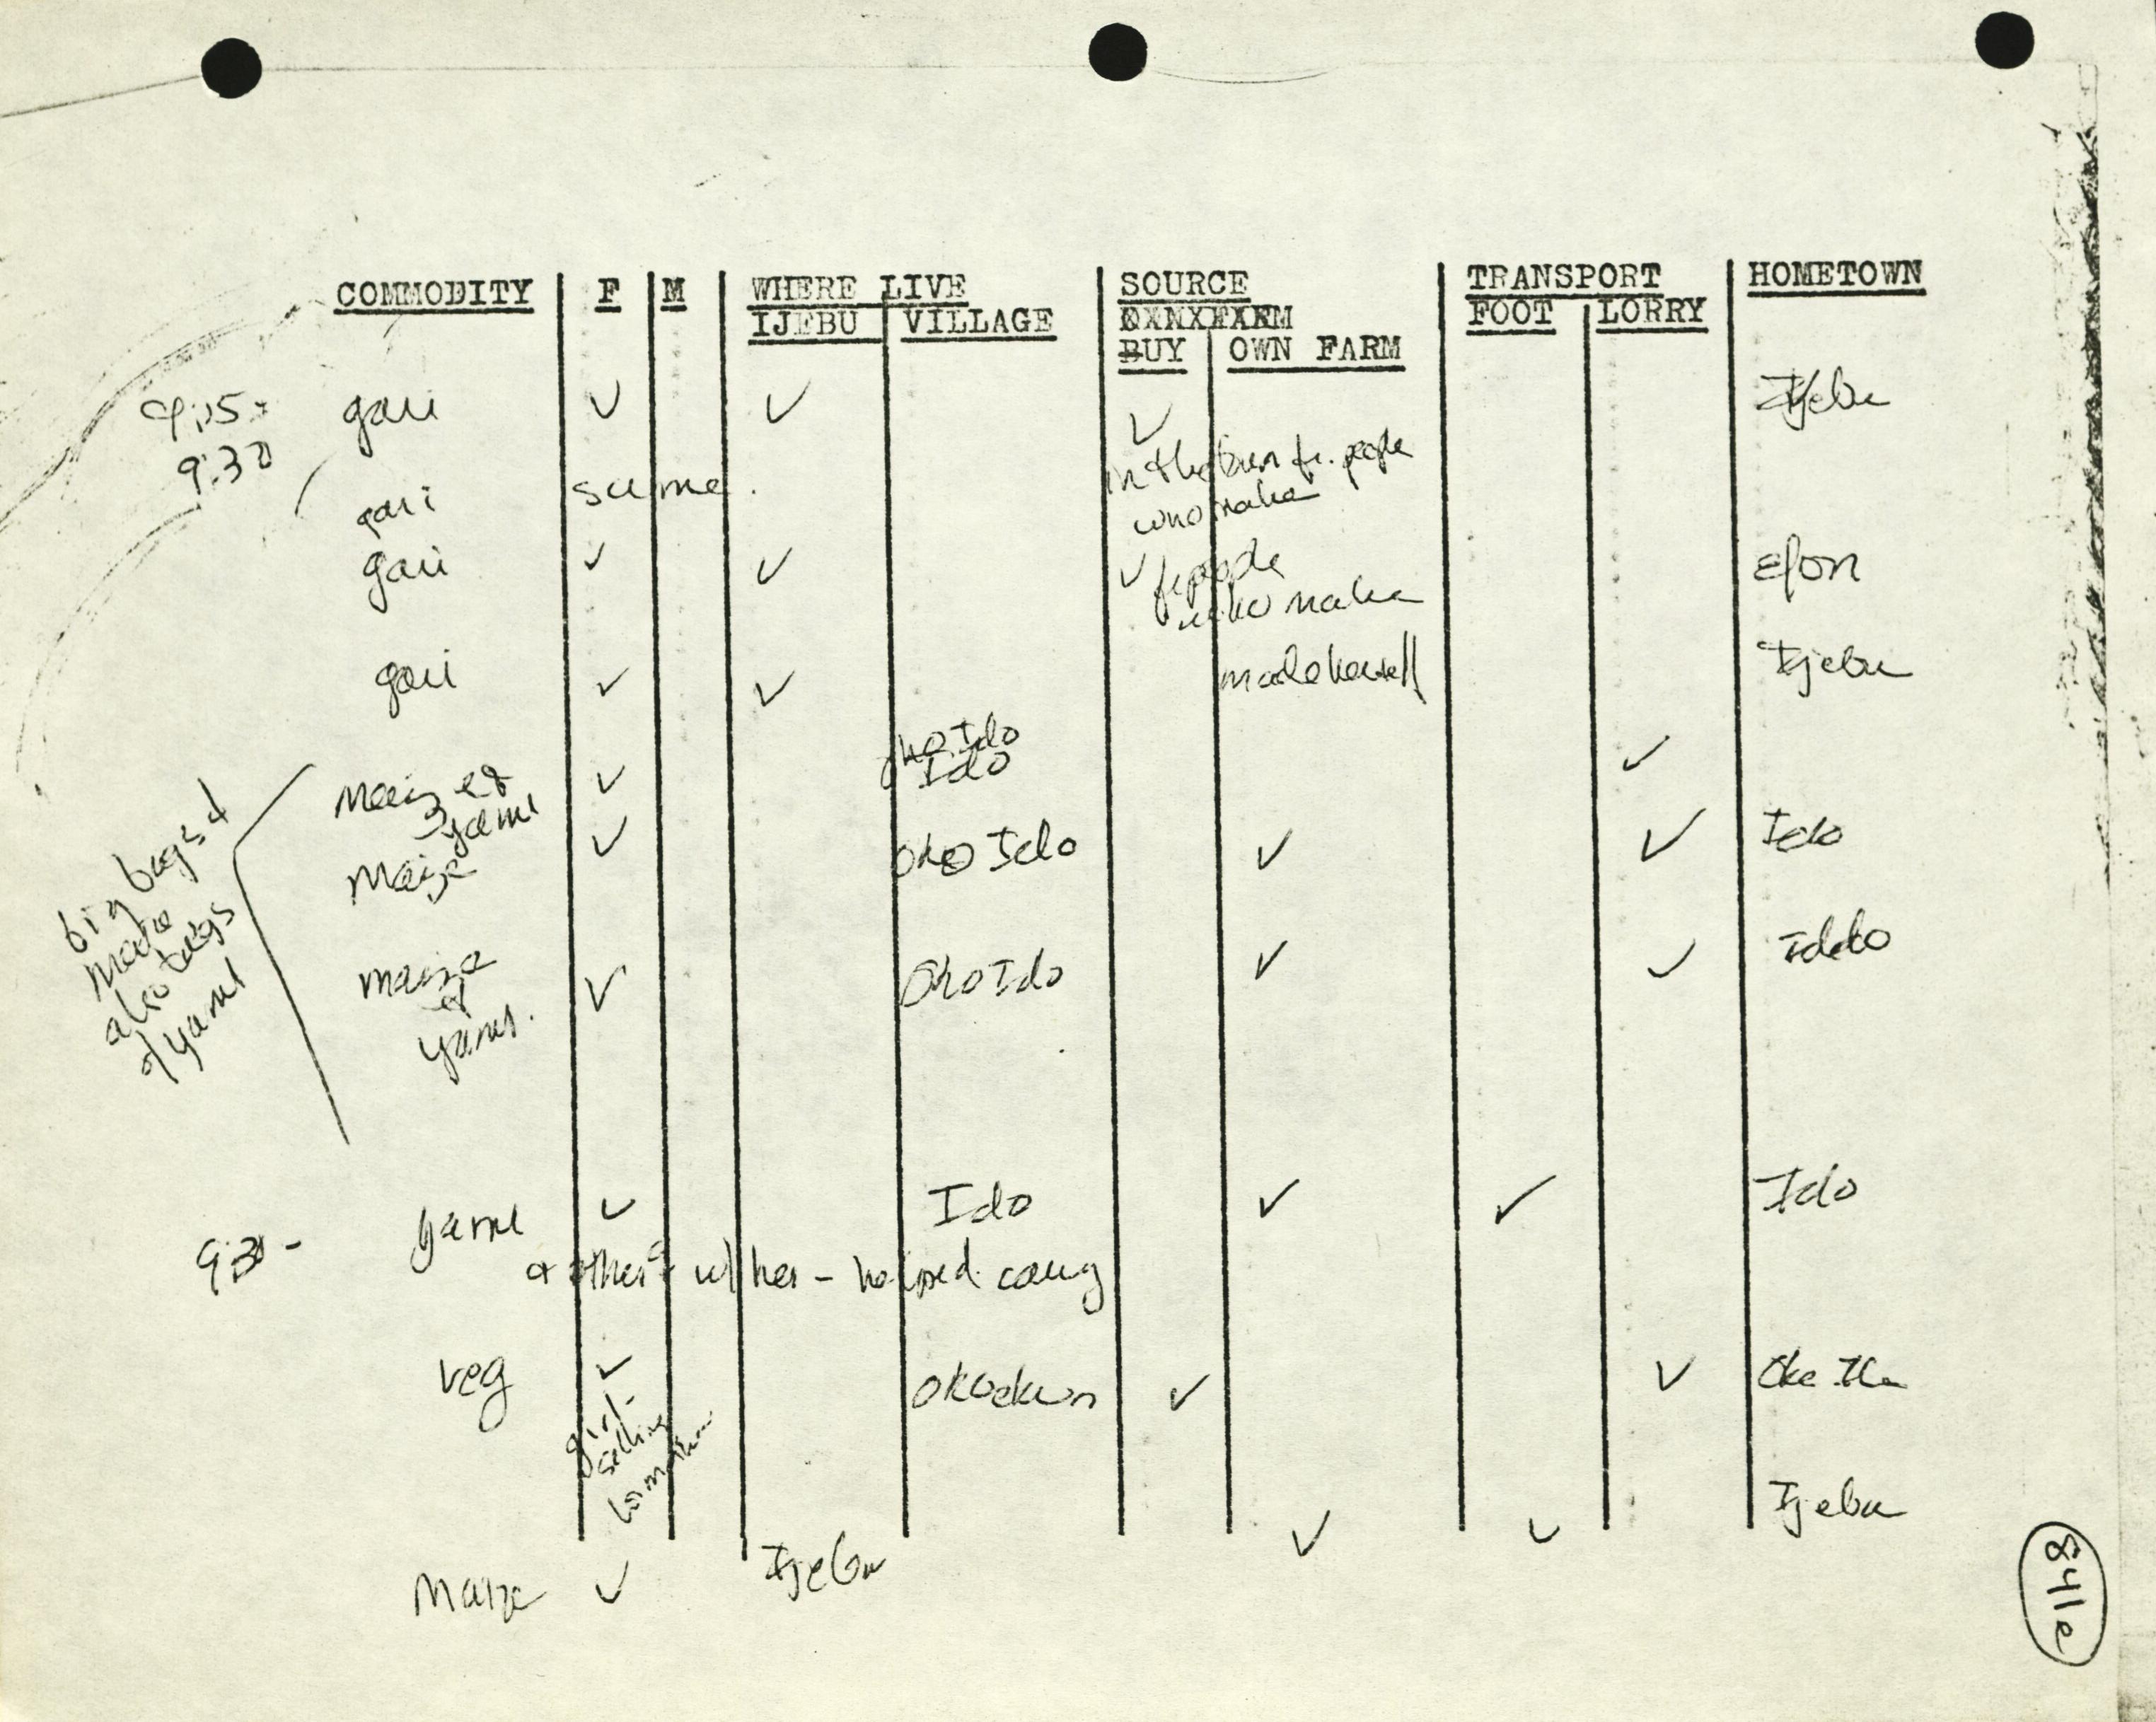 COMMODITY F M WHERE LIVE SOURCE TRANSPORT HOMETOWN
IJEBU VILLAGE FOOT LORRY
BUY OWN FARM
9:15-
9:30
gari ✓ ✓ ✓ Ijebu
in the town fr. people
who make
gari same.
gari ✓ ✓ ✓ fr people Efon
who make
gari ✓ ✓ made herself Ijebu
oko Ido
Ido
maize & ✓ ✓
yams
maize ✓ Oko Ido ✓ ✓ Ido
big bags of
maize
also bags
of yams
maize ✓ Oko Ido ✓ ✓ Iddo
&
yams.
9:30 - yams ✓ Ido ✓ ✓ Ido
& others w/ her - helped carry
veg ✓ ✓ ✓
girl-
selling
Maize ✓ Ijebu ✓ ✓ Ijebu
841e